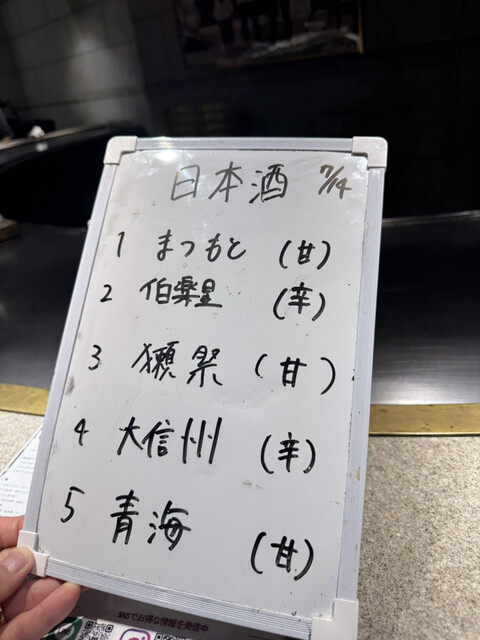 日本酒 7/14
1 まつもと (甘)
2 伯楽星 (辛)
3 獺祭 (甘)
4 大信州 (辛)
5 青海 (甘)
SNSでお得な情報を発信中